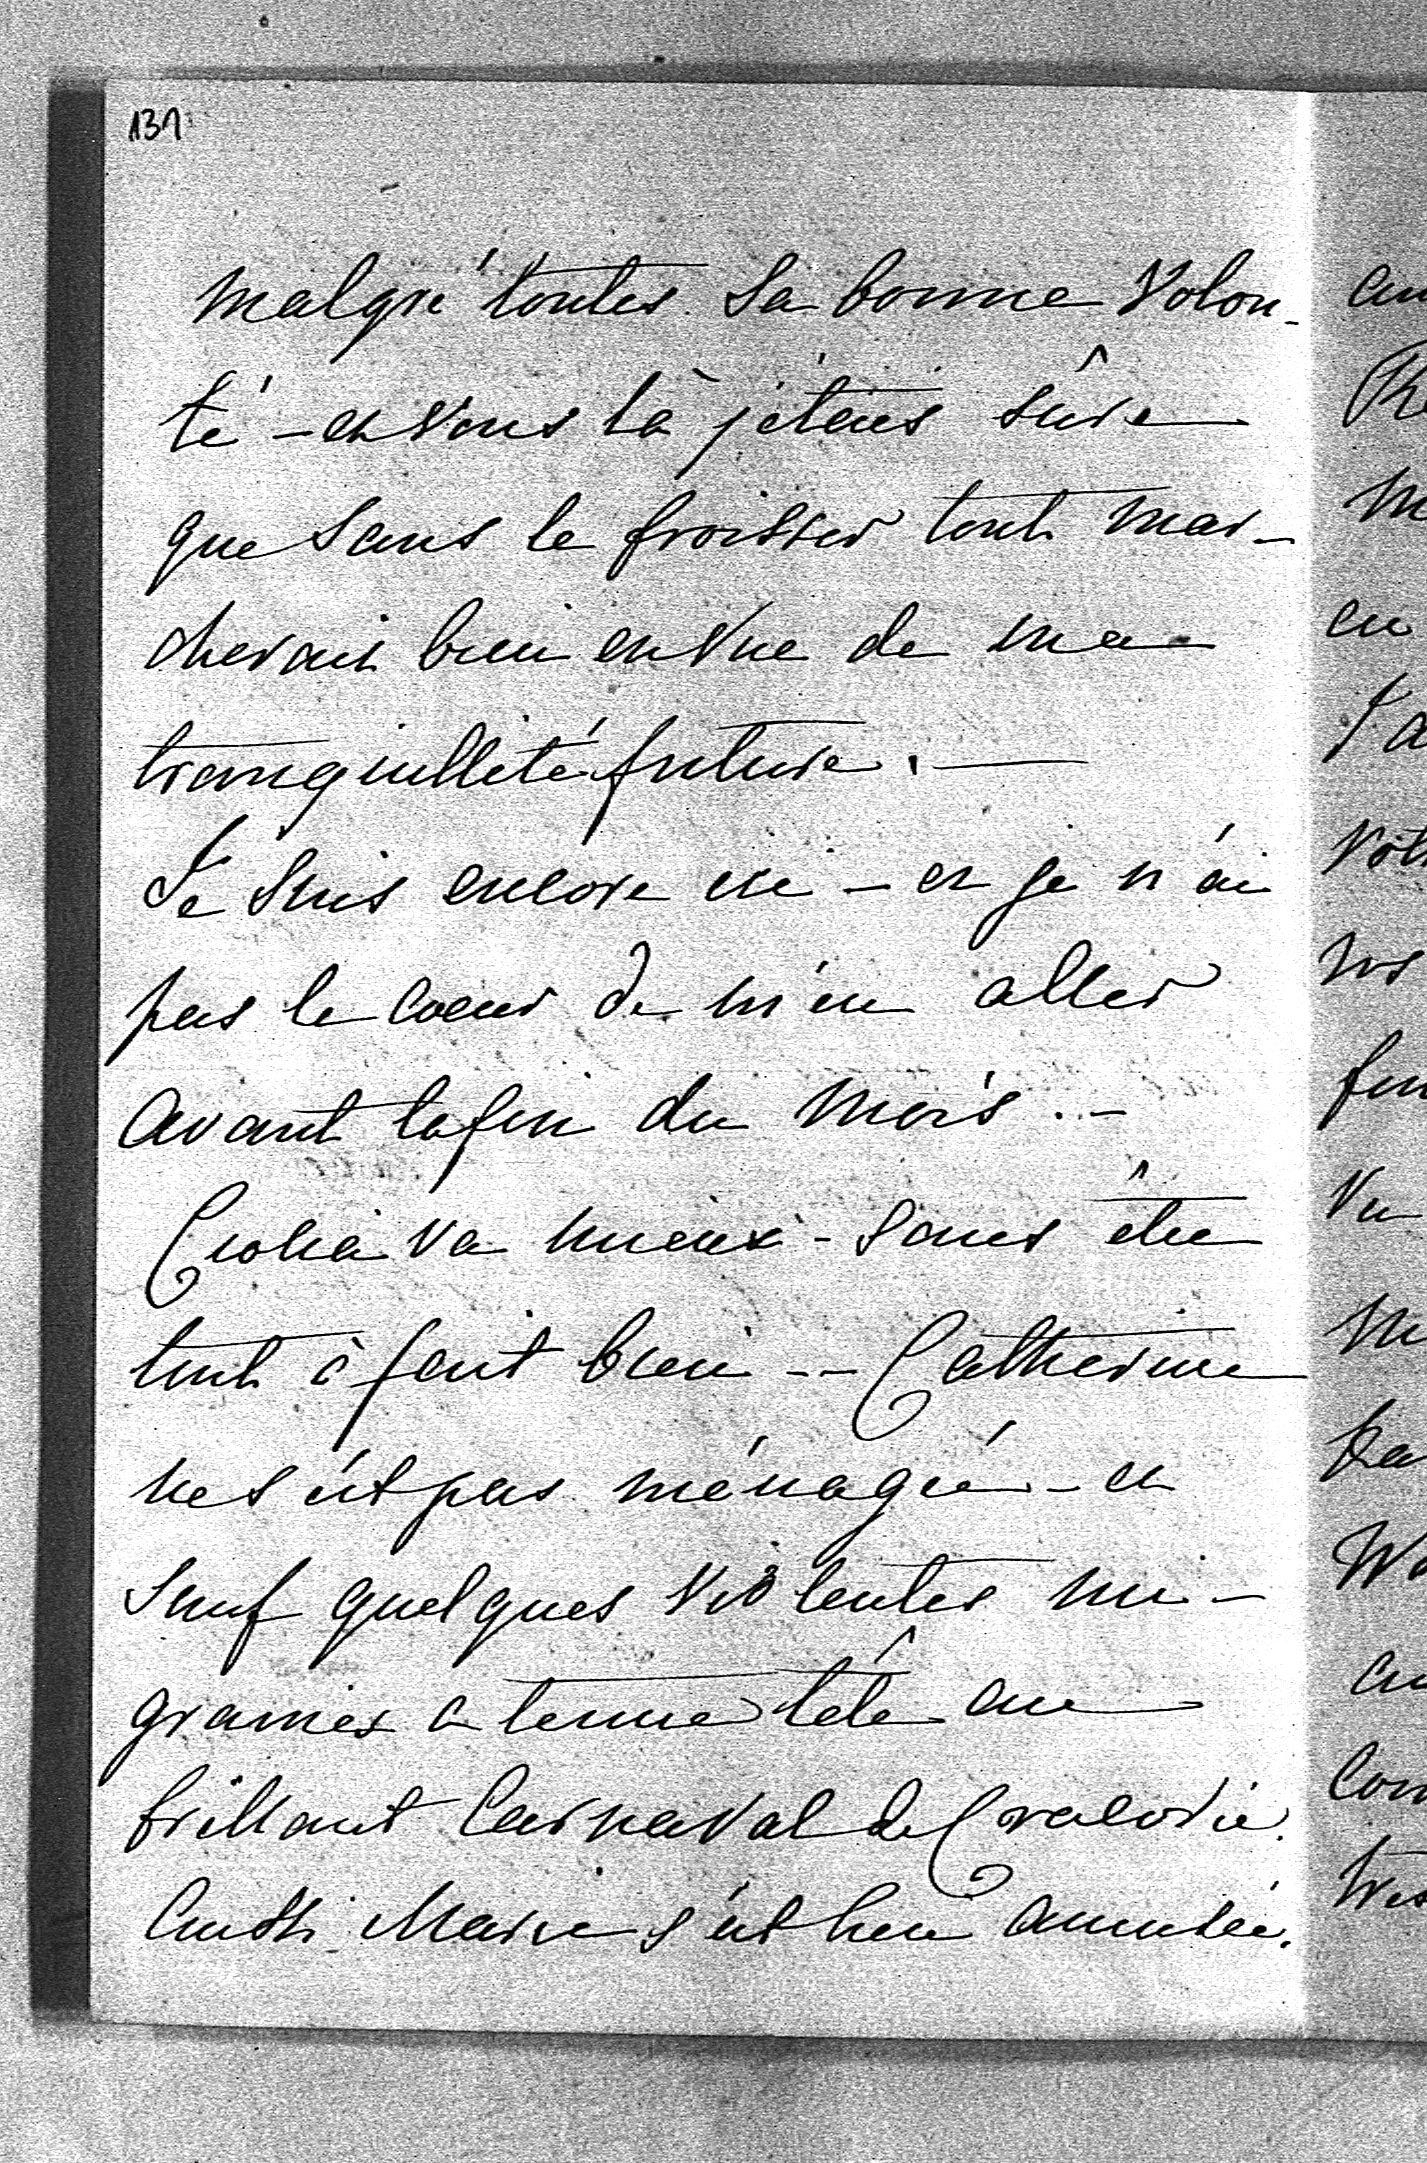 131
malgré toutes sa bonne volon-
té - et vous là j'étais sûre
que sans le froisser tout mar-
cherait bien en vue de ma
tranquillité future. —
Je suis encore ici - et je n'ai
pas le coeur de m'en aller
avant la fin du mois. -
va mieux - sans être
tout à fait bien -- Catherine
ne s'est pas ménagée - et
sauf quelques violentes mi-
graines a tenue tête au
brillant Carnaval de
Aussi Marie s'est bien amusée.